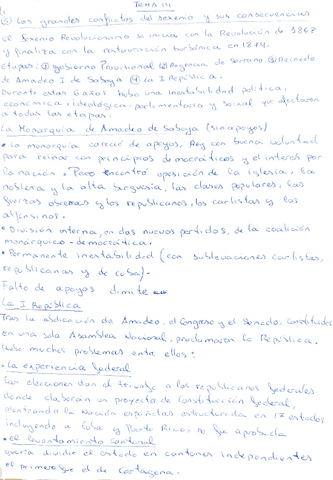 TEMA 14
⑤ Los grandes conflictos del sexenio y sus consecuencias
el Sexenio Revolucionario se inicia con la Revolución de 1868
y finaliza con la restauración borbónica en 1874.
etapas: ① gobierno Provisional ② Regencia de Serrano ③ Reinado
de Amadeo I de Saboya ④ La I República.
Durante estos 6 años hubo una inestabilidad política,
económica e ideológica-parlamentaria y social que afectaron
a todas las etapas.
La Monarquía de Amadeo de Saboya (sin apoyos)
• La monarquía careció de apoyos, Rey con buena voluntad
para reinar con principios democráticos y el interés por
la nación. Pero encontró oposición de la iglesia, la
nobleza y la alta burguesía, las clases populares, las
fuerzas obreras y los republicanos, los carlistas y los
alfonsinos.
• División interna, en dos nuevos partidos, de la coalición
monárquico-democrática.
• Permanente inestabilidad (con sublevaciones carlistas,
republicanas y de cuba).
Falto de apoyos dimite
La I República
Tras la abdicación de Amadeo, el Congreso y el Senado, constituidos
en una sola Asamblea Nacional, proclamaron la República.
Hubo muchos problemas entre ellos:
• La experiencia federal
Las elecciones dan el triunfo a los republicanos federales
donde elaboran un proyecto de Constitución federal,
planteando la nación española estructurada en 17 estados
incluyendo a Cuba y Puerto Rico, no fue aprobada
• el levantamiento cantonal
quería dividir el estado en cantones independientes
el primero fue el de Cartagena.